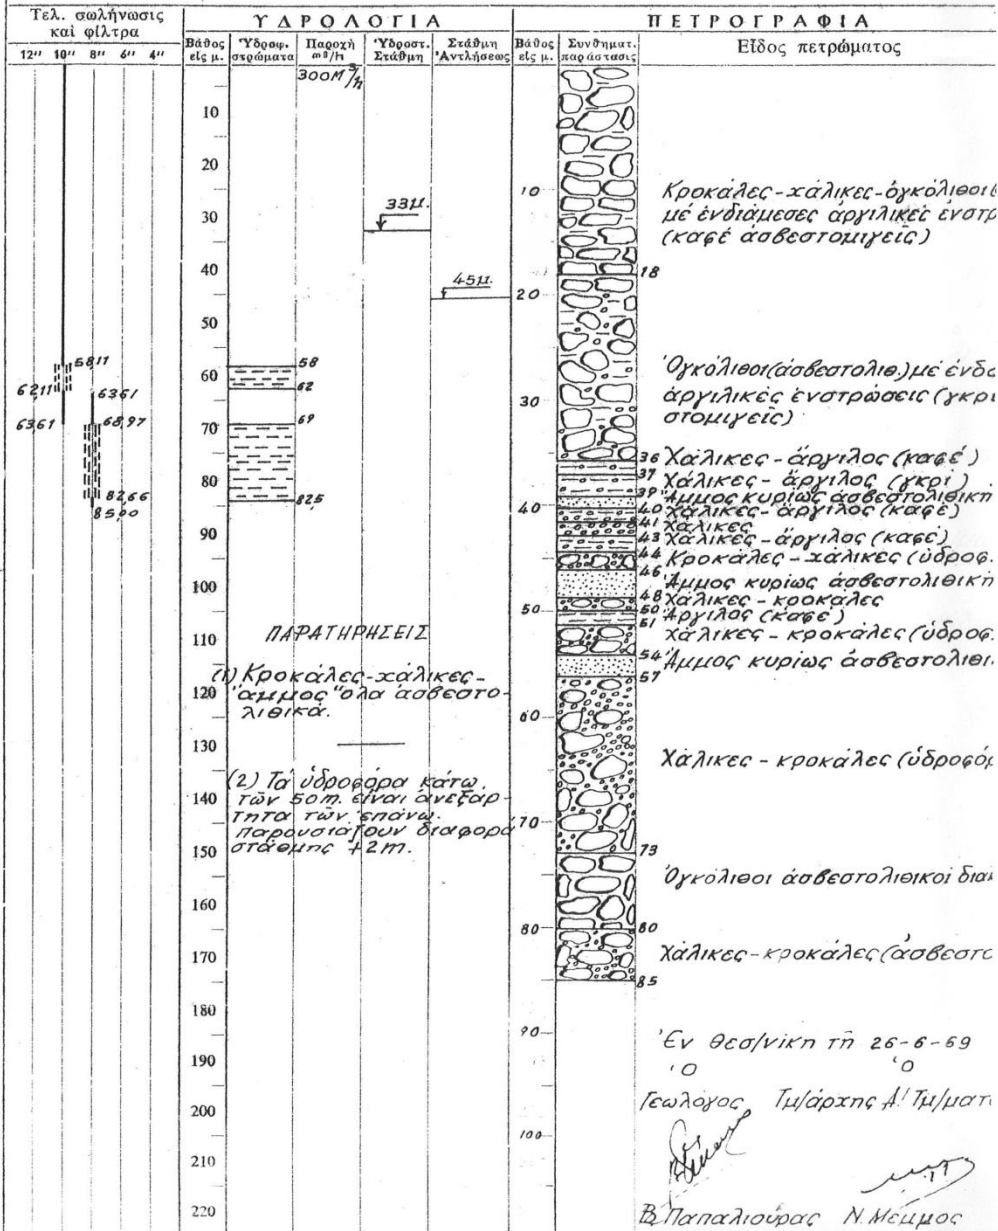 Τελ. σωλήνωσις
καί φίλτρα
12" 10" 8" 6" 4"
58,11
62,11
63,61
63,61
68,97
82,66
85,00
ΥΔΡΟΛΟΓΙΑ
Βάθος
εἰς μ.
Ὑδροφ.
στρώματα
Παροχή
m³/h
Ὑδροστ.
Στάθμη
Στάθμη
Ἀντλήσεως
300 M³/h
10
20
30
40
50
60
70
80
90
100
110
120
130
140
150
160
170
180
190
200
210
220
33μ.
45μ.
58
62
69
82,5
ΠΑΡΑΤΗΡΗΣΕΙΣ
(1) Κροκάλες-χάλικες-
ἄμμος ὅλα ἀσβεστο-
λιθικά.
(2) Τά ὑδροφόρα κάτω
τῶν 50m. εἶναι ἀνεξάρ-
τητα τῶν ἐπάνω.
παρουσιάζουν διαφορά
στάθμης +2m.
ΠΕΤΡΟΓΡΑΦΙΑ
Βάθος
εἰς μ.
Συνθηματ.
παράστασις
Εἶδος πετρώματος
10
20
30
40
50
60
70
80
90
100
Κροκάλες-χάλικες-ὀγκόλιθοι (
μέ ἐνδιάμεσες ἀργιλικές ἐνστρ
(καφέ ἀσβεστομιγείς)
18
Ὀγκόλιθοι (ἀσβεστολιθ.) μέ ἐνδο
ἀργιλικές ἐνστρώσεις (γκρι
στομιγείς)
36 Χάλικες - ἄργιλος (καφέ)
37 Χάλικες - ἄργιλος (γκρί)
39 Ἄμμος κυρίως ἀσβεστολιθική
40 Χάλικες - ἄργιλος (καφέ)
41 Χάλικες
43 Χάλικες - ἄργιλος (καφέ)
44 Κροκάλες - χάλικες (ὑδροφ.
46 Ἄμμος κυρίως ἀσβεστολιθική
48 Χάλικες - κροκάλες
50 Ἄργιλος (καφέ)
51 Χάλικες - κροκάλες (ὑδροφ.
54 Ἄμμος κυρίως ἀσβεστολιθι
57
Χάλικες - κροκάλες (ὑδροφόρ
73
Ὀγκόλιθοι ἀσβεστολιθικοί δια
80
Χάλικες - κροκάλες (ἀσβεστο
85
Ἐν Θεσ/νίκη τῇ 26-6-69
Ὁ Ὁ
Γεωλόγος Τμ/άρχης Α! Τμ/ματ
Β. Παπαλιούρας Ν. Μέμμος